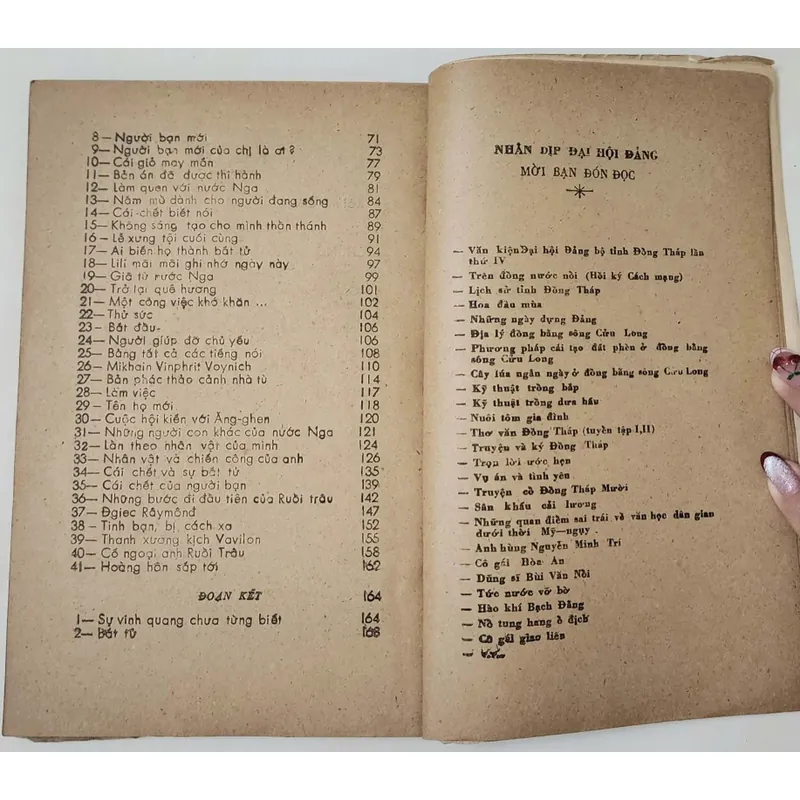 8— Người bạn mới 71
9— Người bạn mới của chị là ai ? 73
10— Cái giỏ may mắn 77
11— Bản án đã được thi hành 79
12— Làm quen với nước Nga 81
13— Nấm mồ dành cho người đang sống 84
14— Cái-chết biết nói 87
15— Không sáng tạo cho mình thần thánh 89
16— Lễ xưng tội cuối cùng 91
17— Ai biến họ thành bất tử 94
18— Lili mãi mãi ghi nhớ ngày này 97
19— Giã từ nước Nga 99
20— Trở lại quê hương 101
21— Một công việc khó khăn ... 102
22— Thử sức 104
23— Bắt đầu 106
24— Người giúp đỡ chủ yếu 106
25— Bằng tất cả các tiếng nói 108
26— Mikhain Vinphrit Voynich 110
27— Bản phác thảo cảnh nhà tù 114
28— Làm việc 117
29— Tên họ mới 118
30— Cuộc hội kiến với Ăng-ghen 120
31— Những người con khác của nước Nga 121
32— Làn theo nhân vật của mình 124
33— Nhân vật và chiến công của anh 126
34— Cái chết và sự bất tử 135
35— Cái chết của người bạn 139
36— Những bước đi đầu tiên của Ruồi trâu 142
37— Đgiec Râymônđ 147
38— Tình bạn, bị, cách xa 152
39— Thanh xương kịch Vavilon 155
40— Cố ngoại anh Ruồi Trâu 158
41— Hoàng hôn sắp tới 162
ĐOẠN KẾT 164
1— Sự vinh quang chưa từng biết 164
2— Bất tử 168
NHÂN DỊP ĐẠI HỘI ĐẢNG
MỜI BẠN ĐÓN ĐỌC
— Văn kiệnĐại hội Đảng bộ tỉnh Đồng Tháp lần
thứ IV
— Trên đồng nước nồi (Hồi ký Cách mạng)
— Lịch sử tỉnh Đồng Tháp
— Hoa đầu mùa
— Những ngày dựng Đảng
— Địa lý đồng bằng sông Cửu Long
— Phương pháp cải tạo đất phèn ở đồng bằng
sông Cửu Long
— Cây lúa ngắn ngày ở đồng bằng sông Cửu Long
— Kỹ thuật trồng bắp
— Kỹ thuật trồng dưa hấu
— Nuôi tôm gia đình
— Thơ văn Đồng Tháp (tuyển tập I,II)
— Truyện và ký Đồng Tháp
— Trọn lời ước hẹn
— Vụ án và tình yên
— Truyện cổ Đồng Tháp Mười
— Sân khấu cải lương
— Những quan điểm sai trái về văn học dân gian
dưới thời Mỹ—ngụy .
— Anh hùng Nguyễn Minh Trí
— Cô gái Hòa An
— Dũng sĩ Bùi Văn Nồi
— Tức nước vỡ bờ
— Hào khí Bạch Đằng
— Nổ tung hang ổ địch
— Cô gái giao liên
— v.v..